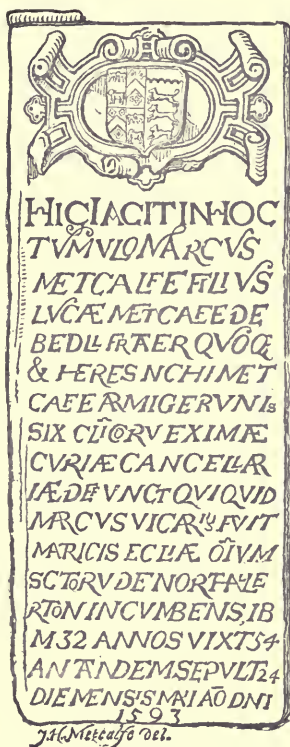 HIC IACIT IN HOC
TVMVLO MARCVS
METCALFE FILIVS
LVCÆ METCAFE DE
BEDLL FRATER QVOQE
& HERES NCHI MET
CAFE ARMIGER VNIs
SIX CLICORV EXIMÆ
CVRIÆ CANCELLAR
IÆ DEFVNCT QVI QVID
MARCVS VICARIꝰ FVIT
MATRICIS ECLIÆ OIVM
SCTORV DE NORTALE
RTON INCVMBENS, IB
M 32 ANNOS VIXT 54
AN TANDEM SEPVLT 24
DIE MENSIS MAI AŌ DNI
1593
J.H. Metcalfe del.